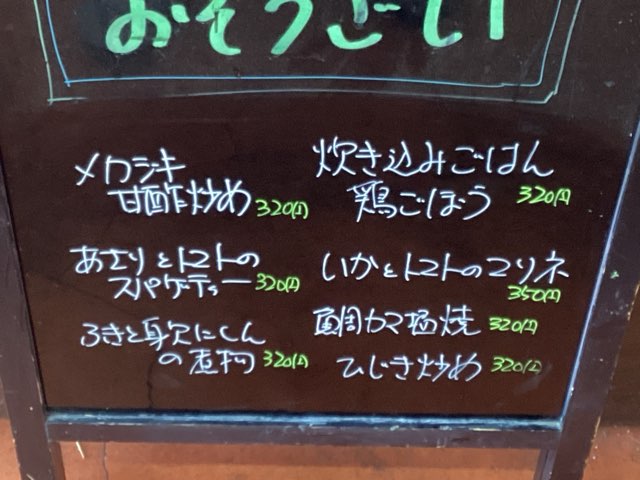 おそうざい
メカジキ
甘酢炒め 320円
あさりとトマトの
スパゲティー 320円
ふきと身欠にしん
の煮物 320円
炊き込みごはん
鶏ごぼう 320円
いかとトマトのマリネ
350円
鯛カマ塩焼 320円
ひじき炒め 320円